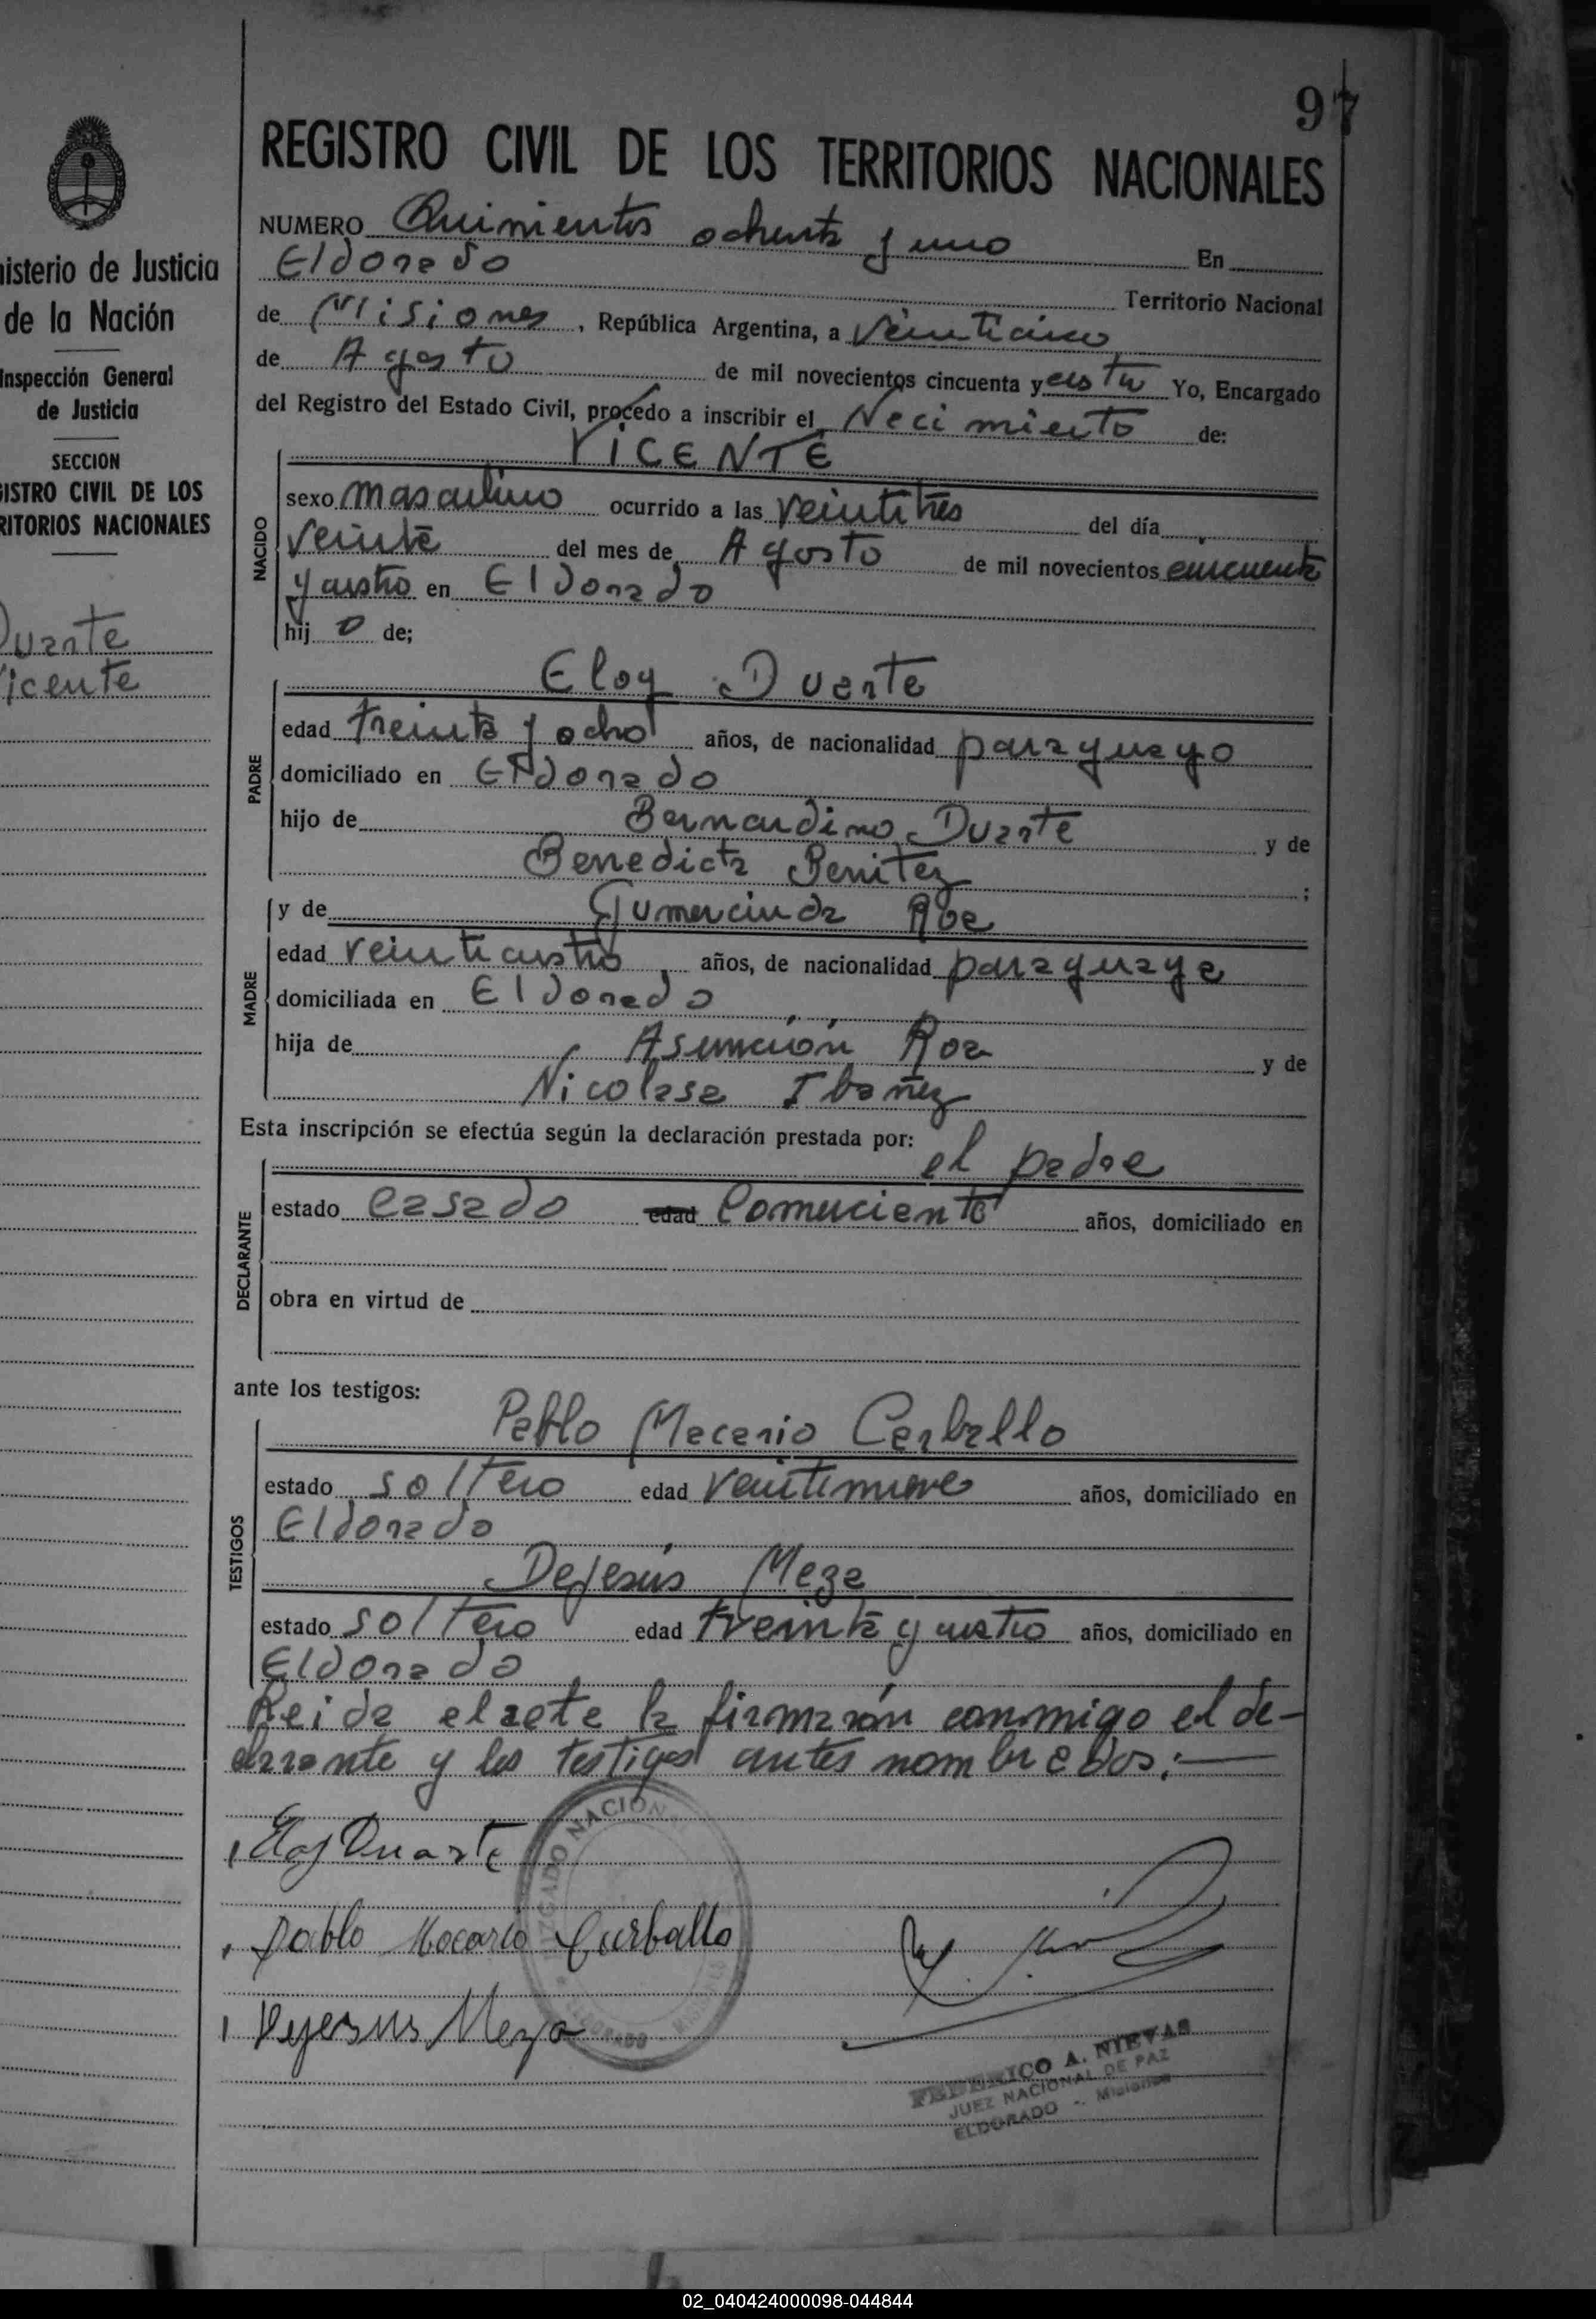 97
REGISTRO CIVIL DE LOS TERRITORIOS NACIONALES
NUMERO Quinientos ochenta y uno En
Eldorado Territorio Nacional
de Misiones, República Argentina, a Veinticinco
de Agosto de mil novecientos cincuenta y cuatro Yo, Encargado
del Registro del Estado Civil, procedo a inscribir el Nacimiento de:
VICENTE
NACIDO
sexo masculino ocurrido a las veintitres del día
veinte del mes de Agosto de mil novecientos cincuenta
y cuatro en Eldorado
hij o de;
PADRE
Eloy Duarte
edad treinta y ocho años, de nacionalidad paraguayo
domiciliado en Eldorado
hijo de Bernardino Duarte y de
Benedicta Benitez ;
MADRE
y de Gumercinda Roa
edad veinticuatro años, de nacionalidad paraguaya
domiciliada en Eldorado
hija de Asunción Roa y de
Nicolasa Ibañez
Esta inscripción se efectúa según la declaración prestada por:
el padre
DECLARANTE
estado casado edad Comerciante años, domiciliado en
obra en virtud de
ante los testigos:
TESTIGOS
Pablo Macario Carballo
estado soltero edad veintinueve años, domiciliado en
Eldorado
Dejesús Meza
estado soltero edad treinta y cuatro años, domiciliado en
Eldorado
Leida el acta la firmarón conmigo el de-
clarante y los testigos antes nombrados.-
Eloy Duarte
Pablo Macario Carballo
Dejesus Meza
JUZGADO NACION
ELDORADO - MISIONES
FEDERICO A. NIEVAS
JUEZ NACIONAL DE PAZ
ELDORADO - Misiones
nisterio de Justicia
de la Nación
Inspección General
de Justicia
SECCION
GISTRO CIVIL DE LOS
RITORIOS NACIONALES
Duarte
Vicente
02_040424000098-044844